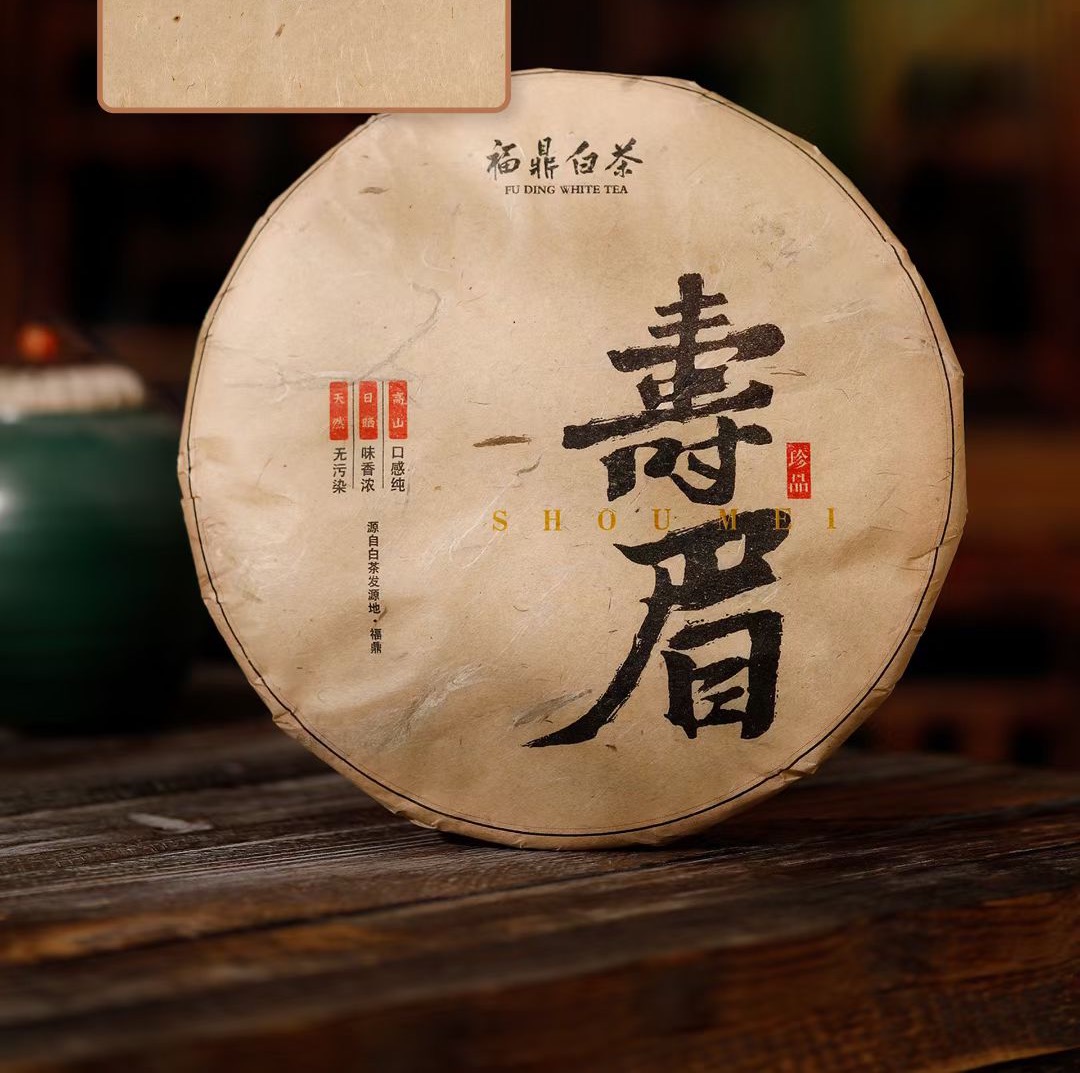 福鼎白茶
FU DING WHITE TEA
壽眉
SHOU MEI
珍品
高山 口感纯
日晒 味香浓
天然 无污染
源自白茶发源地·福鼎